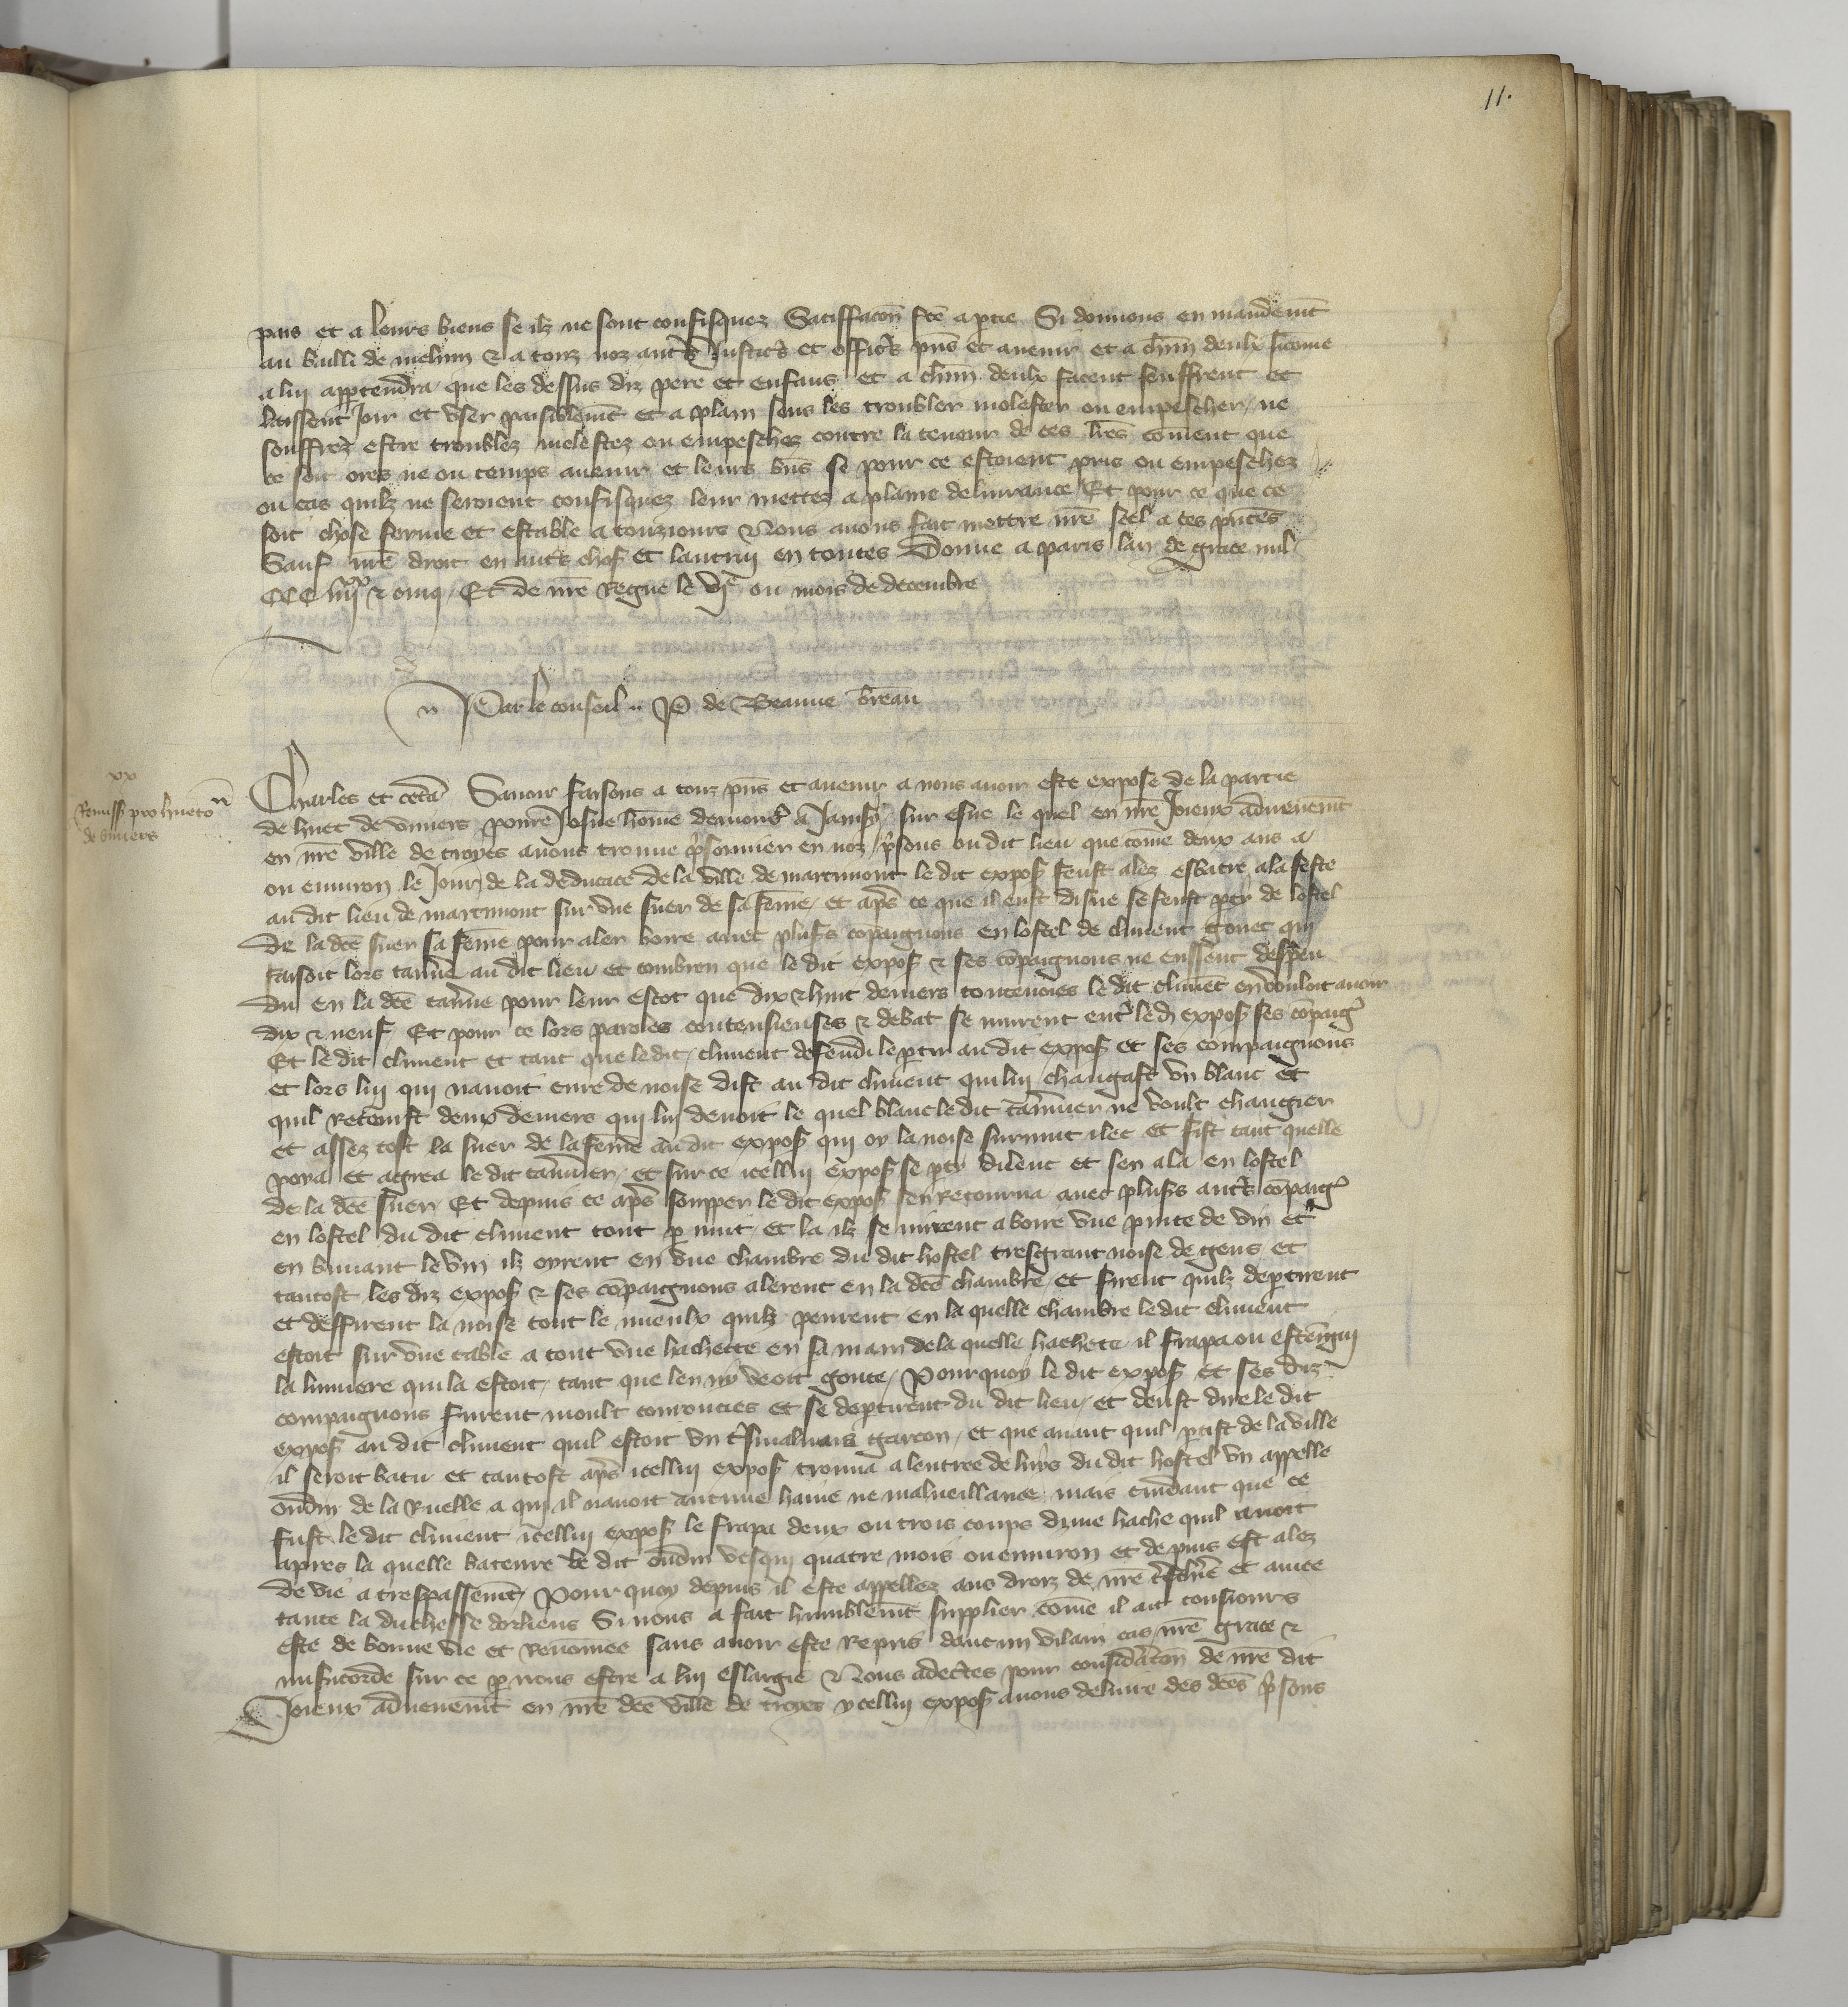 11.
pais et a leurs biens se ilz ne sont confisquez Satiffacōn fcē a ptie Si donnons en mandemt̄
au bailli de meleun & a touz noz autr̄s Justic̄s et offic̄s pn̄s et avenir et a chūn deulx si cōme
a lui apptendra que les dessus diz pere et enfans et a chūn deulx facent seuffrent et
laissent Joir et user paisiblemt̄ et a plain sens les troubler molester ou empescher / ne
souffrer estre troublez molestez ou empeschez contre la teneur de ces lrēs coment que
ce soit ores ne ou temps avenir et leurs bn̄s se pour ce estoient pris ou empeschez
ou cas quilz ne seroient confisquez leur mettez a plaine delivrance Et pour ce que ce
soit chose ferme et estable a touzjours Nous avons fait mettre nrē seel a ces pn̄tes
Sauf nrē droit en autrs chos et lautrui en toutes Donne a paris lan de grace mil
CCC iiiixx & cinq / Et de nrē Regne le vie ou mois de decembre
Par le conseil P de Beaune breau
xx
Remiss pro hueton
de viviers
Charles et cetā Savoir faisons a touz pn̄s et avenir a nous avoir este expose de la partie
de huet de viviers povre Josne hōme demour a sur le quel en nrē Joieux advenemt̄
en nrē ville de troyes avons trouve psonnier en noz psons ou dit lieu que cōme deux ans a
ou environ le Jour de la dedicace de la ville de marcimont le dit expos feust alez esbatre a la feste
au dit lieu de marcimont sur une suer de sa fēme / et aps ce que il eust disne se feust pti de lostel
de la dcē suer sa fēme pour aler boire avec plus̄s cōpaignons en lostel de climent gouet qui
faisoit lors tavn̄e au dit lieu et combien que le dit expos & ses cōpaignons ne eussent despen
du en la dcē tavn̄e pour leur escot que dix & huit deniers toutevoies le dit climēt en vouloit avoir
dix & neuf Et pour ce lors paroles contensieuses & debat se murent entr led expos ses cōpaig
Et le dit climent et tant que le dit climent defendi le ptir au dit expos et ses compaignons
et lors lui qui navoit cure de noise dist au dit climent qui lui changast un blanc et
quil Retenist deux deniers qui lui devoit le quel blanc le dit tavnier ne voult changier
et assez tost la suer de la fēme au dit expos qui oy la noise survint ilec et fist tant quelle
poya et agrea le dit tavnier / et sur ce icellui expos se pti dilenc et sen ala en lostel
de la dcē suer Et depuis ce aps soupper le dit expos sen Retourna avec plus̄s autrs cōpaig
en lostel du dit climent tout p nuit / et la ilz se mirent a boire une pinte de vin et
en buvant le vin ilz oyrent en une chambre du dit hostel tresgrant noise de gens et
tantost les diz expos & ses cōpaignons alerent en la dcē chambre / et firent quilz deptirent
et deffirent la noise tout le mieulx quilz peurent en la quelle chambre le dit climent
estoit sur une table a tout une hachette en sa main de la quelle hachete il frapa ou estēngni
la lumiere qui la estoit / tant que len ny veoit goute / Pourquoy le dit expos et ses diz
compaignons furent moult courouciez et se deptirent du dit lieu / et deust dire le dit
expos au dit climent quil estoit un tsmalvais garcon / et que avant quil ptist de la ville
il seroit batu et tantost aps icellui expos trouva a lentree de luys du dit hostel un appelle
oudin de la Ruelle a qui il navoit aucune haine ne malveillance mais cuidant que ce
fust le dit climent icellui expos le frapa deux ou trois coups dune hache quil avoit
apres la quelle bateure le dit oudin vesqui quatre mois ou environ et depuis est alez
de vie a trespassemt̄ / Pour quoy depuis il este appellez aus droiz de nrē tchiē et amee
tante la duchesse dorliens Si nous a fait humblemt̄ supplier cōme il ait tousjours
este de bonne vie et Renomee sans avoir este Repris daucun vilain cas nrē grace &
misicorde sur ce p nous estre a lui eslargie Nous adectes pour considacōn de nrē dit
Joieux advenemt̄ en nrē dcē ville de troyes ycellui expos avons delivre des dcēs psons